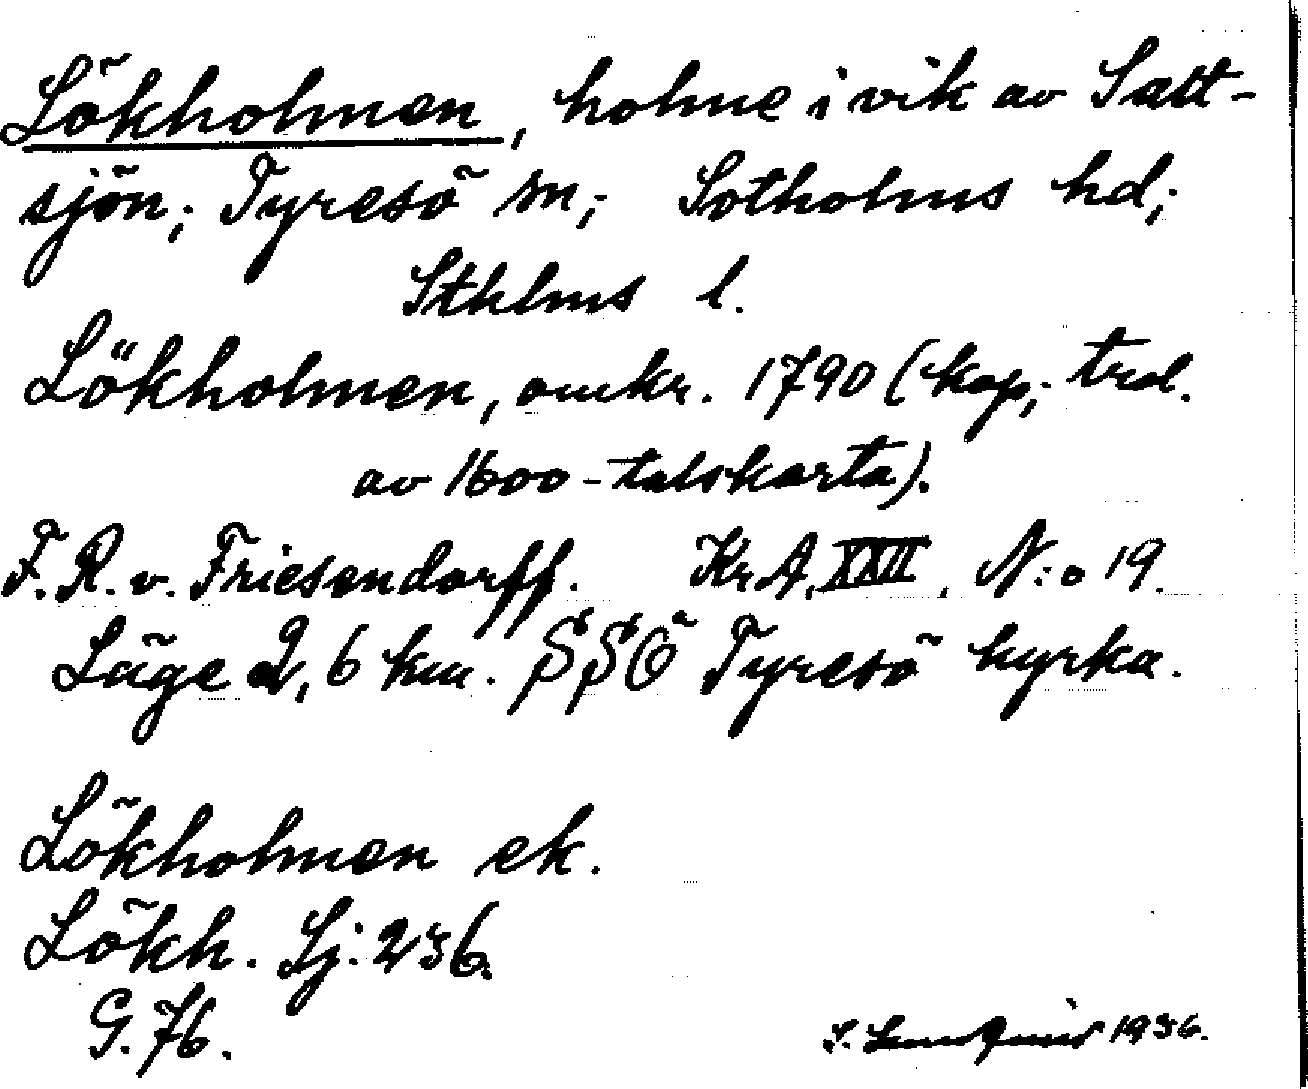 Lökholmen, holme i vik av Salt-
sjön; Tyresö sn; Sotholms hd;
Sthlms l.
Lökholmen, omkr. 1790 (kop; trol.
av 1600-talskarta).
F. R. v. Friesendorff. Kr.A. XXII, N:o 19.
Läge 2,6 km. SSÖ Tyresö kyrka.
Lökholmen ek.
Lökh. Sj: 236.
G. 76.
S. Lundquist 1936.